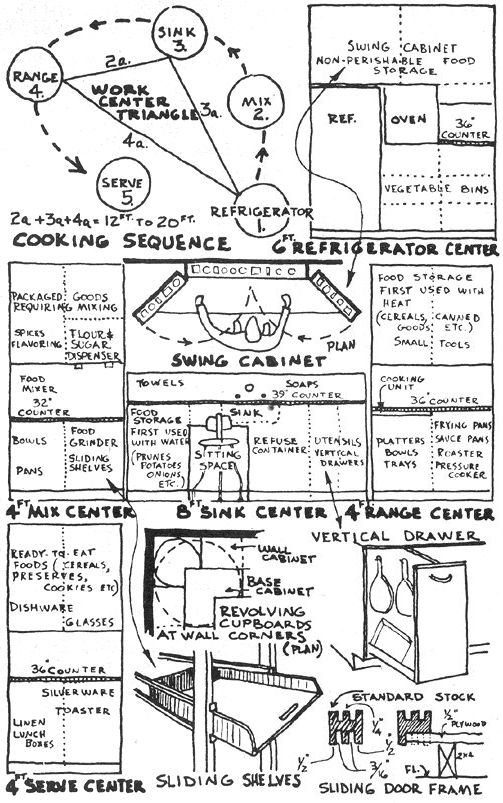 SINK
3.
RANGE
4.
2a.
WORK
CENTER
TRIANGLE
3a.
4a.
MIX
2.
SERVE
5.
REFRIGERATOR
1.
2a+3a+4a=12FT. TO 20FT.
COOKING SEQUENCE
SWING CABINET
NON-PERISHABLE FOOD
STORAGE
REF.
OVEN
36"
COUNTER
VEGETABLE BINS
6FT REFRIGERATOR CENTER
PACKAGED GOODS
REQUIRING MIXING
SPICES
FLAVORING
FLOUR &
SUGAR
DISPENSER
FOOD
MIXER
32"
COUNTER
BOWLS
PANS
FOOD
GRINDER
SLIDING
SHELVES
4FT MIX CENTER
PLAN
SWING CABINET
TOWELS
SOAPS
39" COUNTER
FOOD
STORAGE
FIRST USED
WITH WATER
(PRUNES
POTATOES
ONIONS,
ETC.)
SINK
SITTING
SPACE
REFUSE
CONTAINER
UTENSILS
VERTICAL
DRAWERS
8FT SINK CENTER
FOOD STORAGE
FIRST USED WITH
HEAT
(CEREALS, CANNED
GOODS ETC.)
SMALL TOOLS
COOKING
UNIT
36" COUNTER
PLATTERS
BOWLS
TRAYS
FRYING PANS
SAUCE PANS
ROASTER
PRESSURE
COOKER
4FT RANGE CENTER
READY-TO-EAT
FOODS (CEREALS,
PRESERVES,
COOKIES ETC)
DISHWARE
GLASSES
36" COUNTER
SILVERWARE
TOASTER
LINEN
LUNCH
BOXES
4FT SERVE CENTER
WALL
CABINET
BASE
CABINET
REVOLVING
CUPBOARDS
AT WALL CORNERS
(PLAN)
SLIDING SHELVES
VERTICAL DRAWER
STANDARD STOCK
1/4"
1/2"
1/2"
3/16"
1/2"
PLYWOOD
FL.
2x2
SLIDING DOOR FRAME